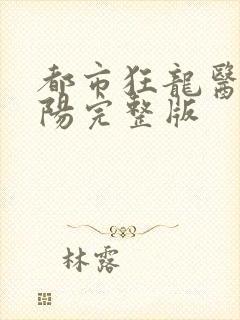 都市狂龍醫
陽完整版
林露